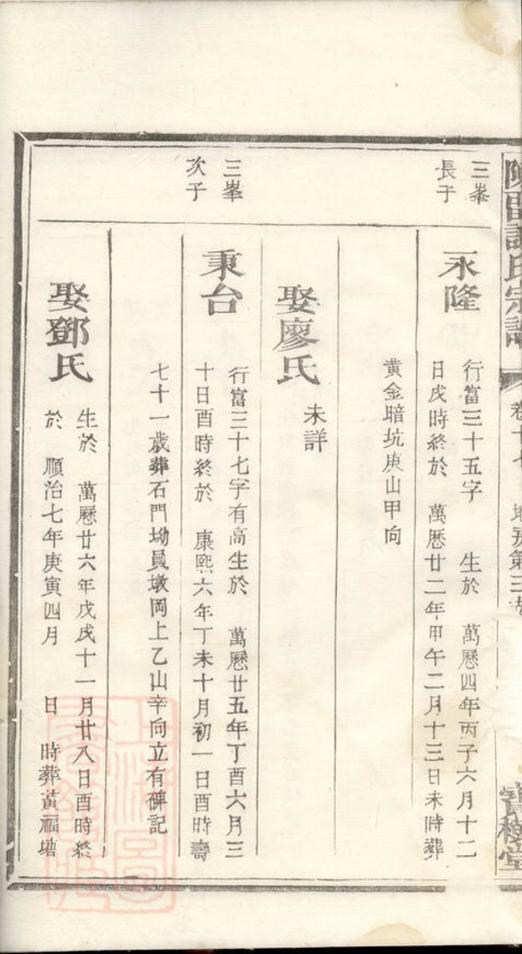 三峯
長子
永隆
行富三十五字 生於 萬曆四年丙子六月十二
日戌時終於 萬曆廿二年甲午二月十三日未時葬
黄金暗坑庚山甲向
娶廖氏
未詳
三峯
次子
秉台
行富三十七字有高生於 萬曆廿五年丁酉六月三
十日酉時終於 康熙六年丁未十月初一日酉時壽
七十一歲葬石門坳員墩岡上乙山辛向立有碑記
娶鄧氏
生於 萬曆廿六年戊戌十一月廿八日酉時終
於 順治七年庚寅四月 日 時葬黃福塘